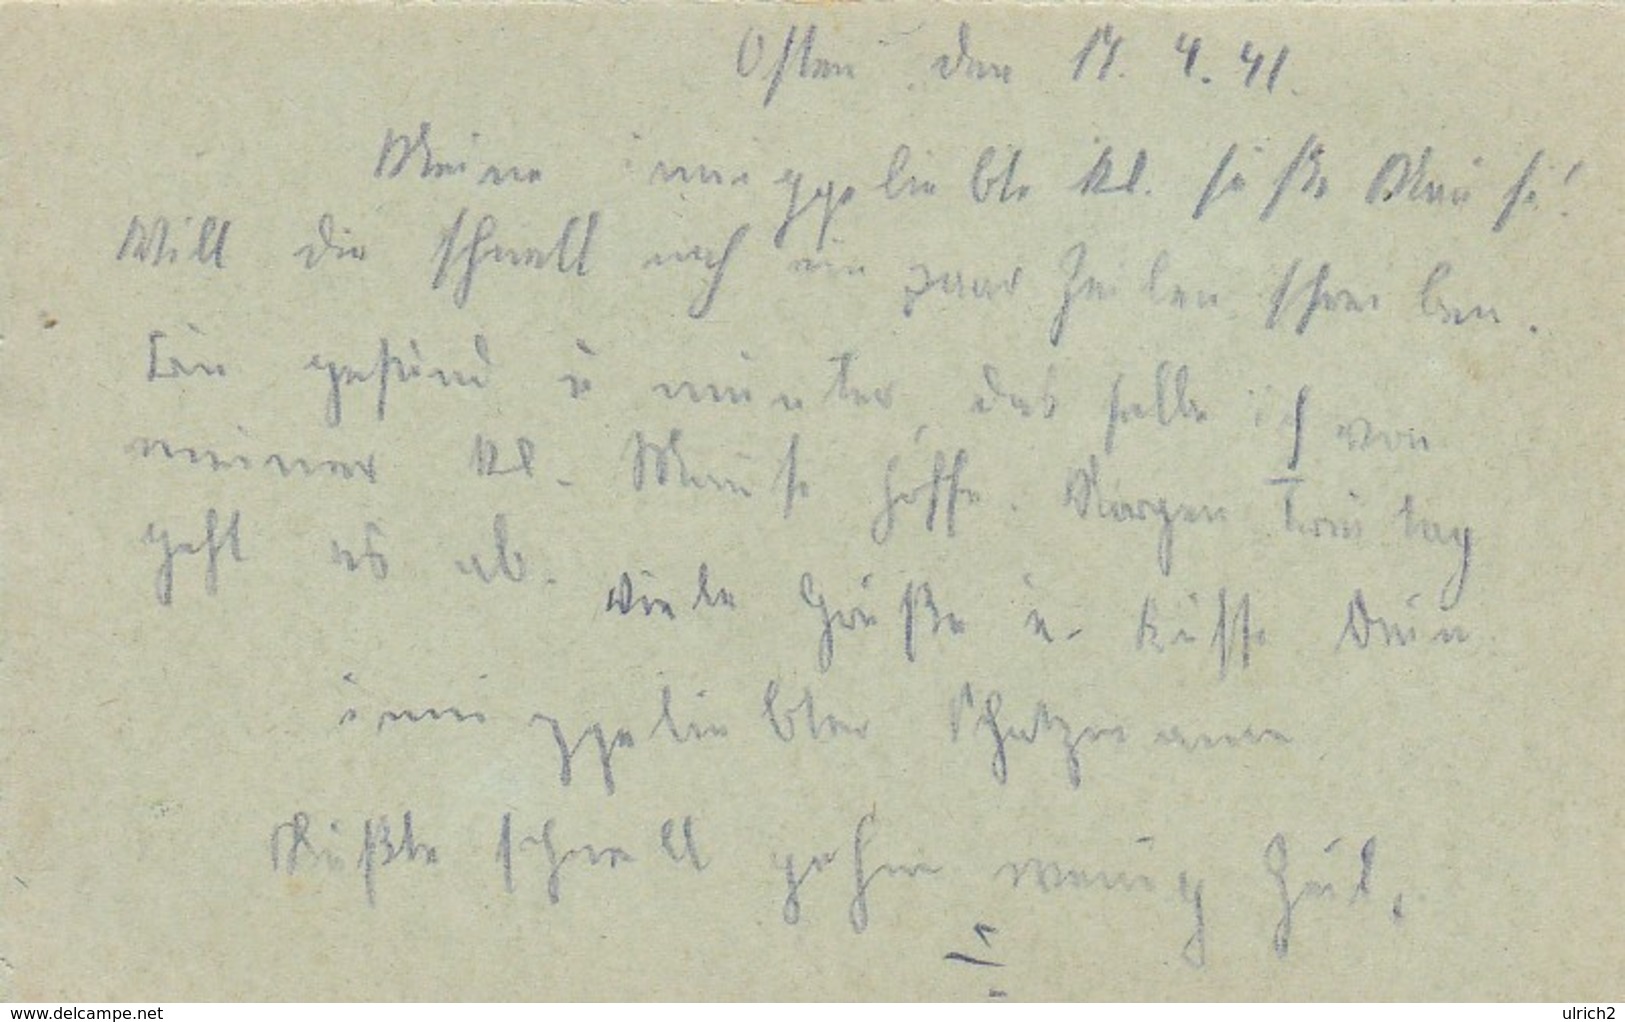 Osten den 17. 4. 41.
Meine inniggeliebte kl. süße Mausi!
Will dir schnell noch ein paar Zeilen schreiben.
Bin gesund u munter, das selbe ich von
meiner kl. Mausi hoffe. Morgen Freitag
geht es ab. Viele Grüße u. Küsse Dein
inniggeliebter Schatzmann
Müßte schnell gehen wenig Zeit.
delcampe.net
ulrich2